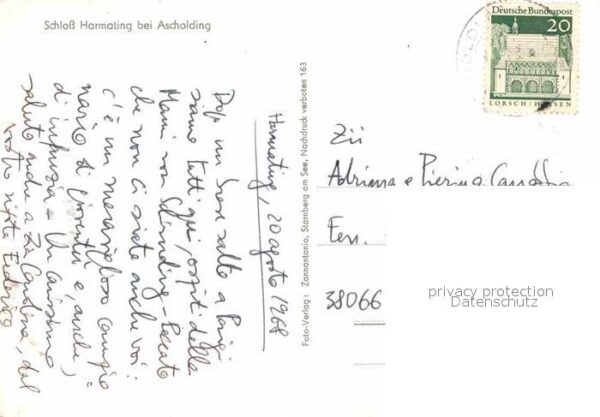 Schloß Harmating bei Ascholding
Harmating, 20 agosto 1968
Dopo un bel salto a Parigi
siamo tutti qui, ospiti della
Mami von Schauding - Peccato
che non ci siate anche voi:
c'è un meraviglioso campio=
nario di gioventù e, anche,
di infanzia - Un carissimo
saluto anche a Zia Carolina, dal
vostro nipote Federico
Foto-Verlag: Zannantonio, Starnberg am See, Nachdruck verboten 163
Deutsche Bundespost
20
LORSCH/HESSEN
Zii
Adriana e Pierino
38066
privacy protection
Datenschutz